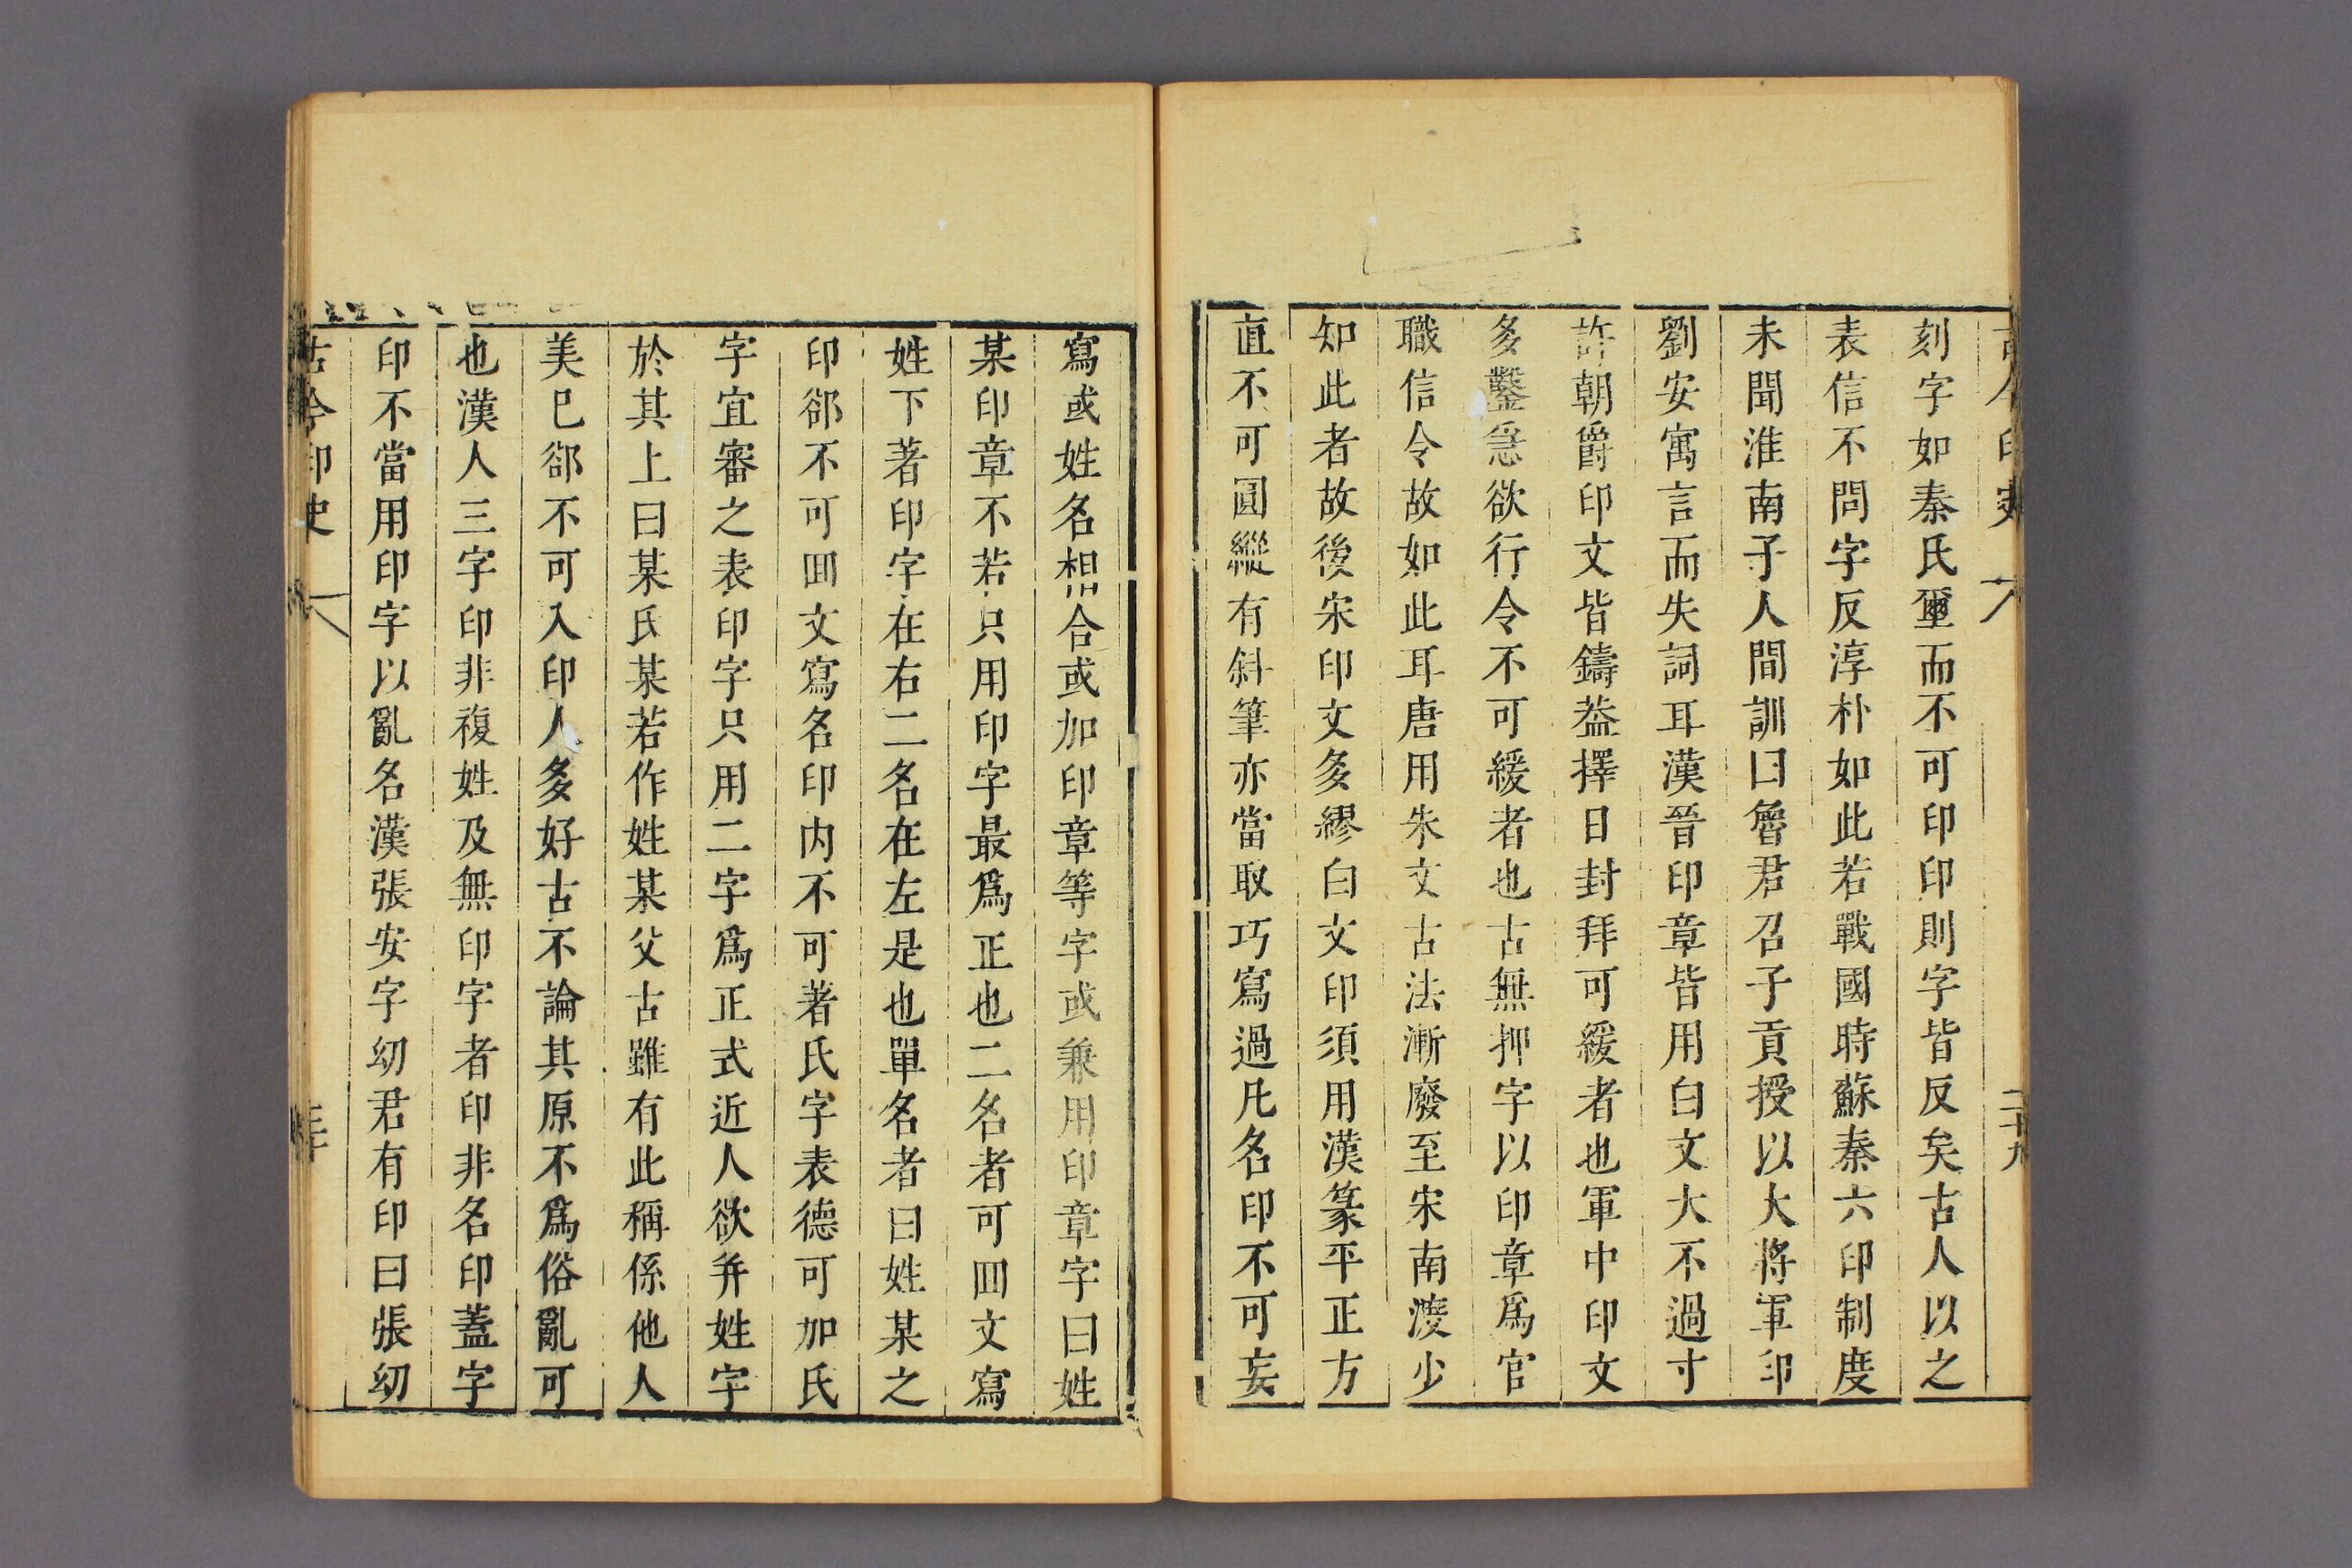 古今印史
二十九
刻字如秦氏璽而不可印印則字皆反矣古人以之
表信不問字反淳朴如此若戰國時蘇秦六印制度
未聞淮南子人間訓曰魯君召子貢授以大將軍印
劉安寓言而失詞耳漢晉印章皆用白文大不過寸
許朝爵印文皆鑄葢擇日封拜可緩者也軍中印文
多鑿急欲行令不可緩者也古無押字以印章爲官
職信令故如此耳唐用朱文古法漸廢至宋南渡少
知此者故後宋印文多繆白文印須用漢篆平正方
直不可圓縱有斜筆亦當取巧寫過凡名印不可妄
寫或姓名相合或加印章等字或兼用印章字曰姓
某印章不若只用印字最爲正也二名者可囬文寫
姓下著印字在右二名在左是也單名者曰姓某之
印郤不可囬文寫名印内不可著氏字表德可加氏
字宜審之表印字只用二字爲正式近人欲并姓字
於其上曰某氏某若作姓某父古雖有此稱係他人
美已郤不可入印人多好古不論其原不爲俗亂可
也漢人三字印非複姓及無印字者印非名印蓋字
印不當用印字以亂名漢張安字幼君有印曰張幼
古今印史
三十